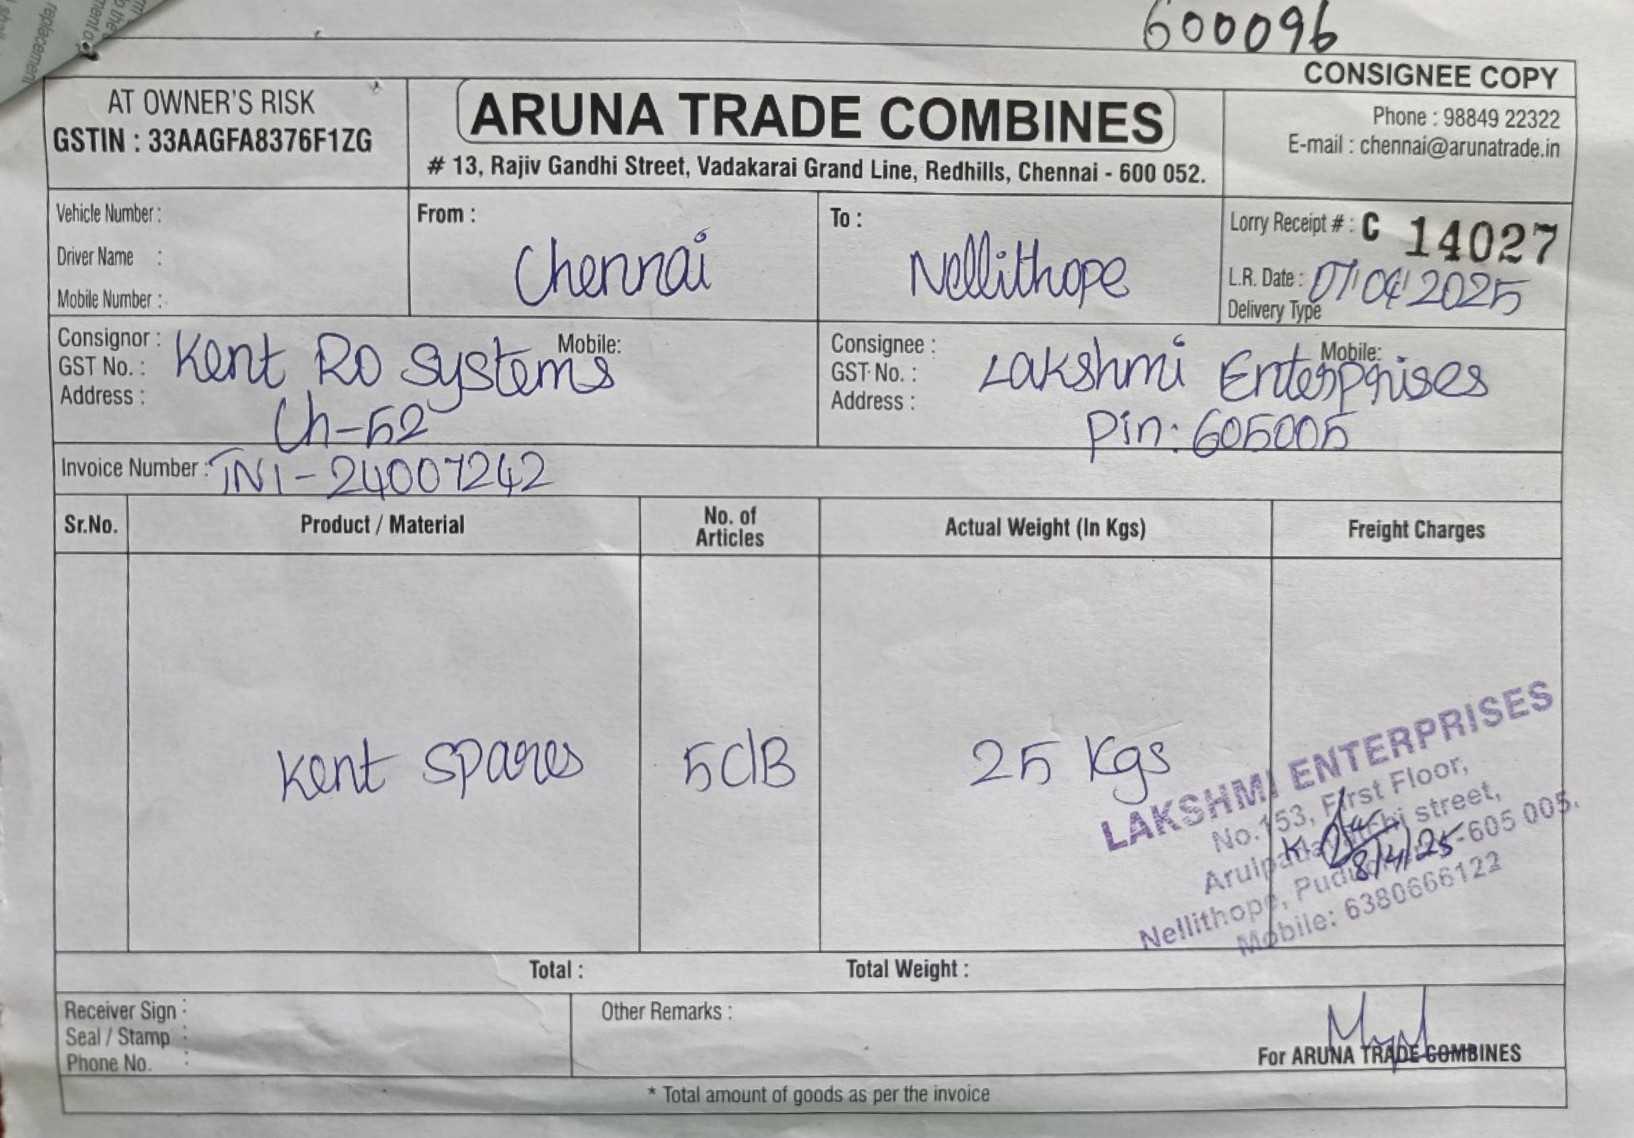 600096
CONSIGNEE COPY
AT OWNER'S RISK
GSTIN : 33AAGFA8376F1ZG
ARUNA TRADE COMBINES
# 13, Rajiv Gandhi Street, Vadakarai Grand Line, Redhills, Chennai - 600 052.
Phone : 98849 22322
E-mail : chennai@arunatrade.in
Vehicle Number :
Driver Name :
Mobile Number :
From :
Chennai
To :
Nellithope
Lorry Receipt # : C 14027
L.R. Date : 07/04/2025
Delivery Type
Consignor : Kent RO Systems Mobile:
GST No. :
Address : Ch-52
Consignee : Lakshmi Enterprises Mobile:
GST No. :
Address : Pin: 605005
Invoice Number : TN1-24007242
Sr.No. Product / Material No. of Articles Actual Weight (In Kgs) Freight Charges
Kent spares 5C/B 25 Kgs
LAKSHMI ENTERPRISES
No.153, First Floor,
street,
Nellithope, 605 005.
Mobile: 6380666122
8/4/25
Total : Total Weight :
Receiver Sign :
Seal / Stamp :
Phone No. :
Other Remarks :
For ARUNA TRADE COMBINES
* Total amount of goods as per the invoice
replacement